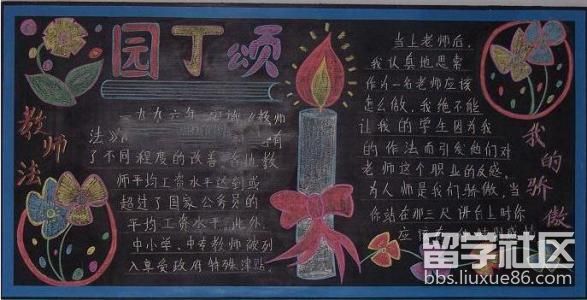 园丁颂
教师法
一九九六年
《教师
法》
有
了不同程度的改善
教
师平均工资水平达到或
超过了国家公务员的
平均工资水平。此外,
中小学、中专教师被列
入享受政府特殊津贴。
当上老师后,
我认真地思索
作为一名老师应该
怎么做,我绝不能
让我的学生因为我
的作法而引发他们对
老师这个职业的反感。
为人师是我们骄傲,当
你站在那三尺讲台上时你
应该
我的骄傲
留学社区
bbs.liuxue86.com